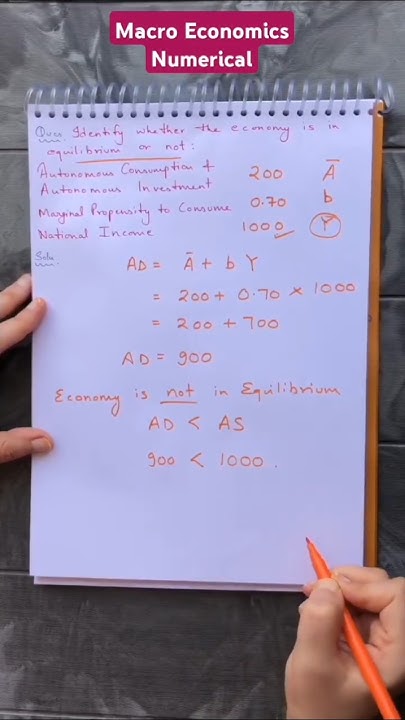 Macro Economics
Numerical
Ques. Identify whether the economy is in
equilibrium or not:
Autonomous Consumption +
Autonomous Investment 200 Ā
Marginal Propensity to Consume 0.70 b
National Income 1000 Y
Soln.
AD = Ā + b Y
= 200 + 0.70 × 1000
= 200 + 700
AD = 900
Economy is not in Equilibrium
AD < AS
900 < 1000.